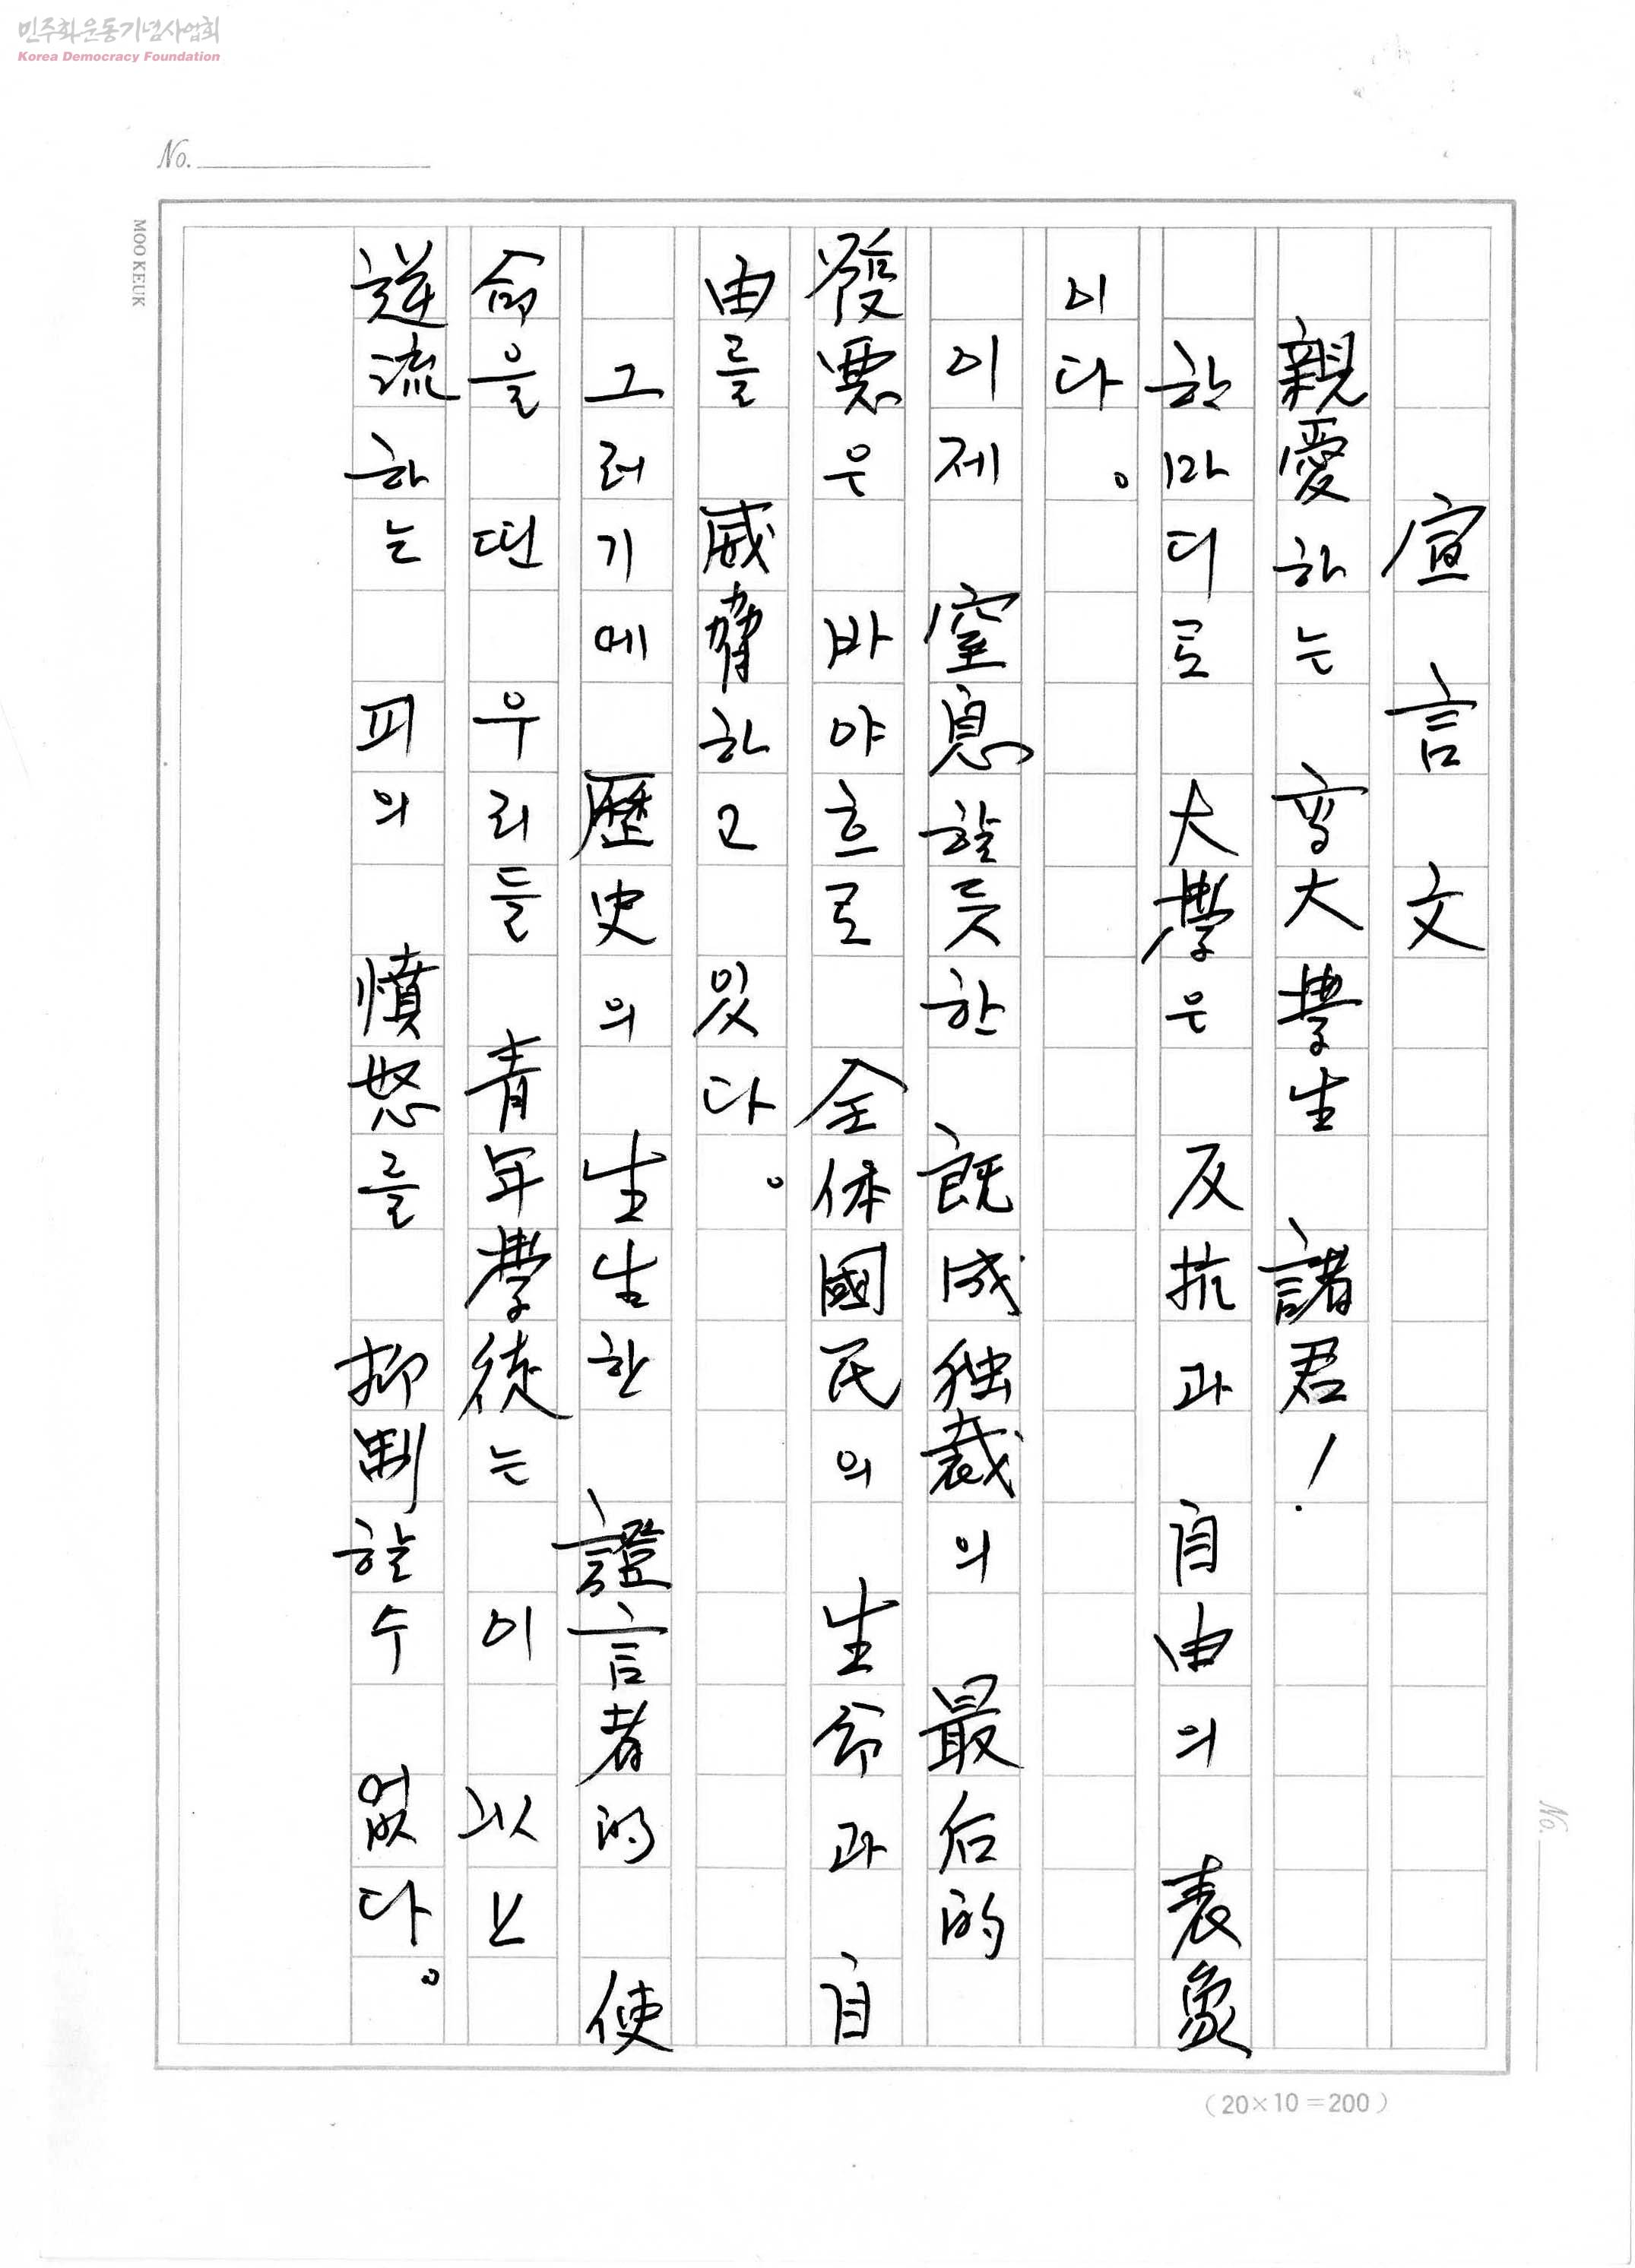 민주화운동기념사업회
Korea Democracy Foundation
No.
MOO KEUK
宣言文
親愛하는 高大學生 諸君!
한마디로 大學은 反抗과 自由의 表象
이다。
이제 窒息할듯한 旣成独裁의 最后的
發悪은 바야흐로 全体國民의 生命과 自
由를 威脅하고 있다。
그러기에 歷史의 生生한 證言者的 使
命을 띤 우리들 青年學徒는 이 以上
逆流하는 피의 憤怒를 抑制할수 없다。
No.
(20×10=200)